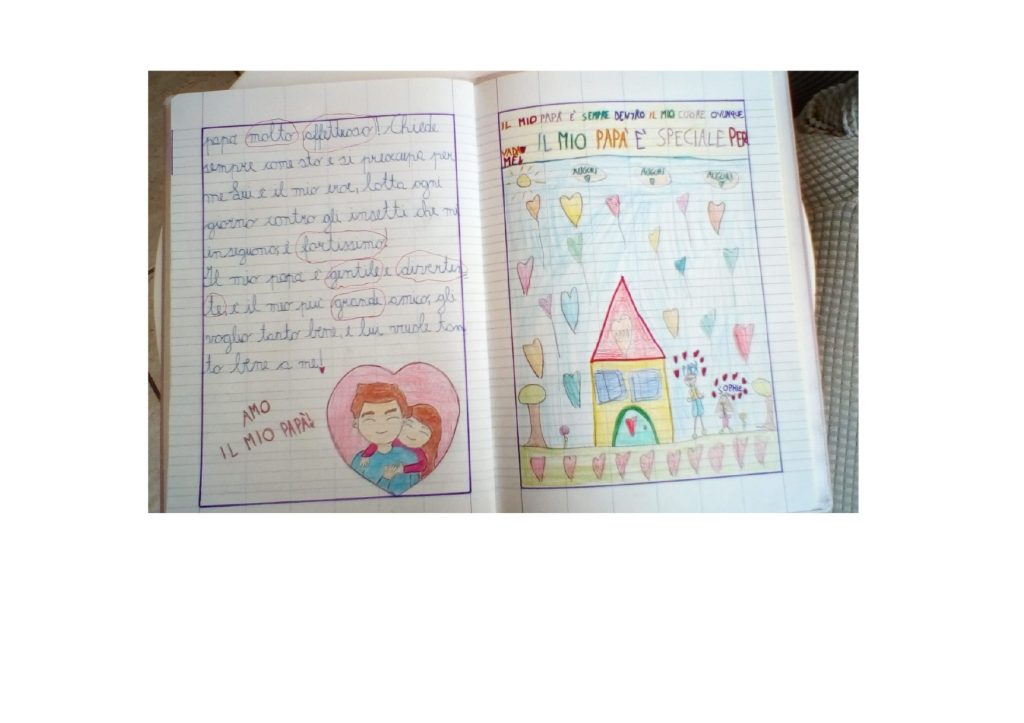 papa molto affettuoso! Chiede
sempre come sto e si preoccupa per
me. Lui è il mio eroe, lotta ogni
giorno contro gli insetti che mi
inseguono, è fortissimo!
Il mio papà è gentile e diverten
te, è il mio più grande amico, gli
voglio tanto bene, e lui vuole tan
to bene a me!
AMO
IL MIO PAPÀ!
IL MIO PAPÀ È SEMPRE DENTRO IL MIO CUORE OVUNQUE
VADA
IL MIO PAPÀ È SPECIALE PER
ME!
AUGURI AUGURI AUGURI
PAPÀ
SOPHIE